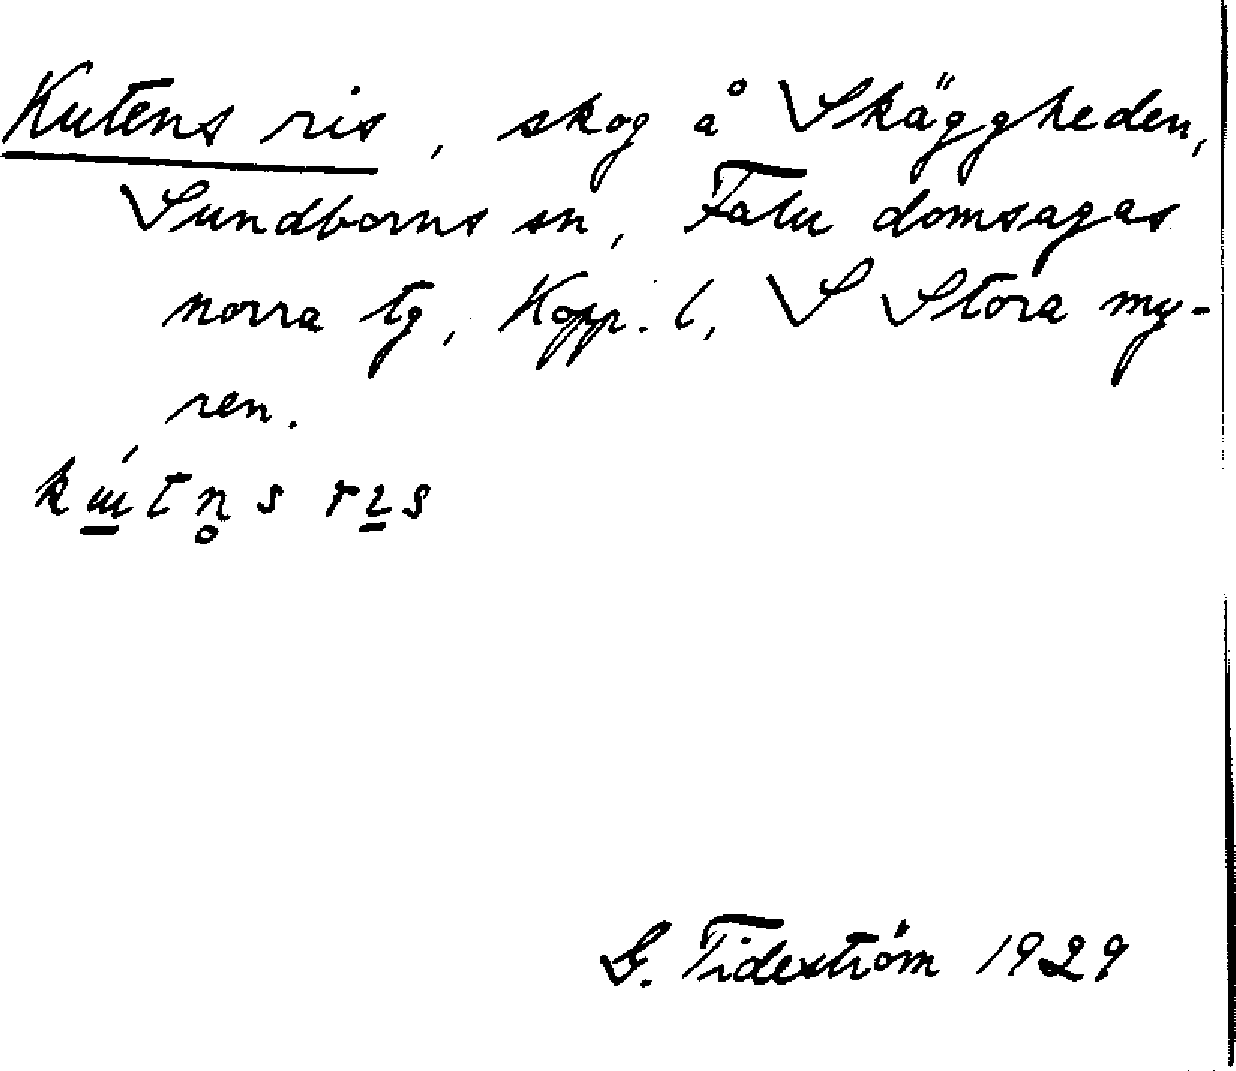 Kutens ris, skog å Skäggheden,
Sundborns sn, Falu domsagas
norra tg, Kopp. l, S Stora my-
ren.
kɯ́tn̥s rɪs
G. Tideström 1929